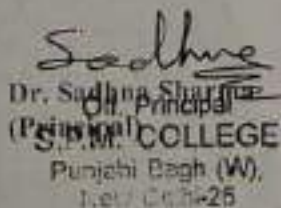 Sadhna
Dr. Sadhna Sharma
Off. Principal
(Principal)
S.P.M. COLLEGE
Punjabi Bagh (W),
New Delhi-26